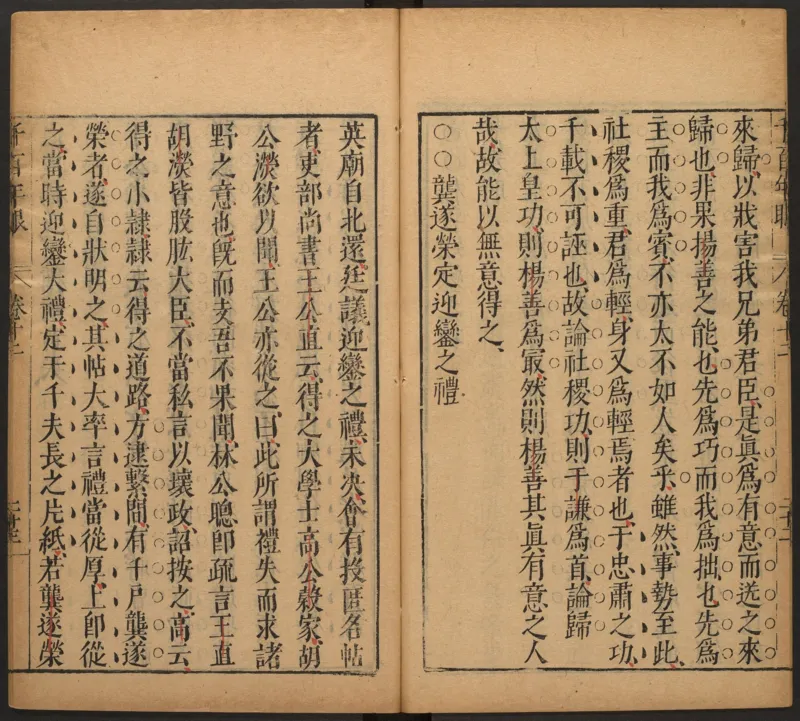 千百年眼 卷十二
來歸以狀害我兄弟君臣是眞爲有意而送之來
歸也非果揚善之能也先爲巧而我爲拙也先爲
主而我爲賓不亦太不如人矣乎雖然事勢至此
社稷爲重君爲輕身又爲輕焉者也于忠肅之功
千載不可誣也故論社稷功則于謙爲首論歸
太上皇功則楊善爲冣然則楊善其眞有意之人
哉故能以無意得之
○○龔遂榮定迎鑾之禮
英廟自北還廷議迎鑾之禮未決會有投匿名帖
者吏部尚書王公直云得之大學士高公穀家胡
公濙欲以聞王公亦從之曰此所謂禮失而求諸
野之意也旣而支吾不果聞林公聰卽疏言王直
胡濙皆股肱大臣不當私言以壞政詔按之高云
得之小隷隷云得之道路方逮繫間有千戶龔遂
榮者遂自狀明之其帖大率言禮當從厚上卽從
之當時迎鑾大禮定于千夫長之片紙若龔遂榮
千百年眼 卷十二